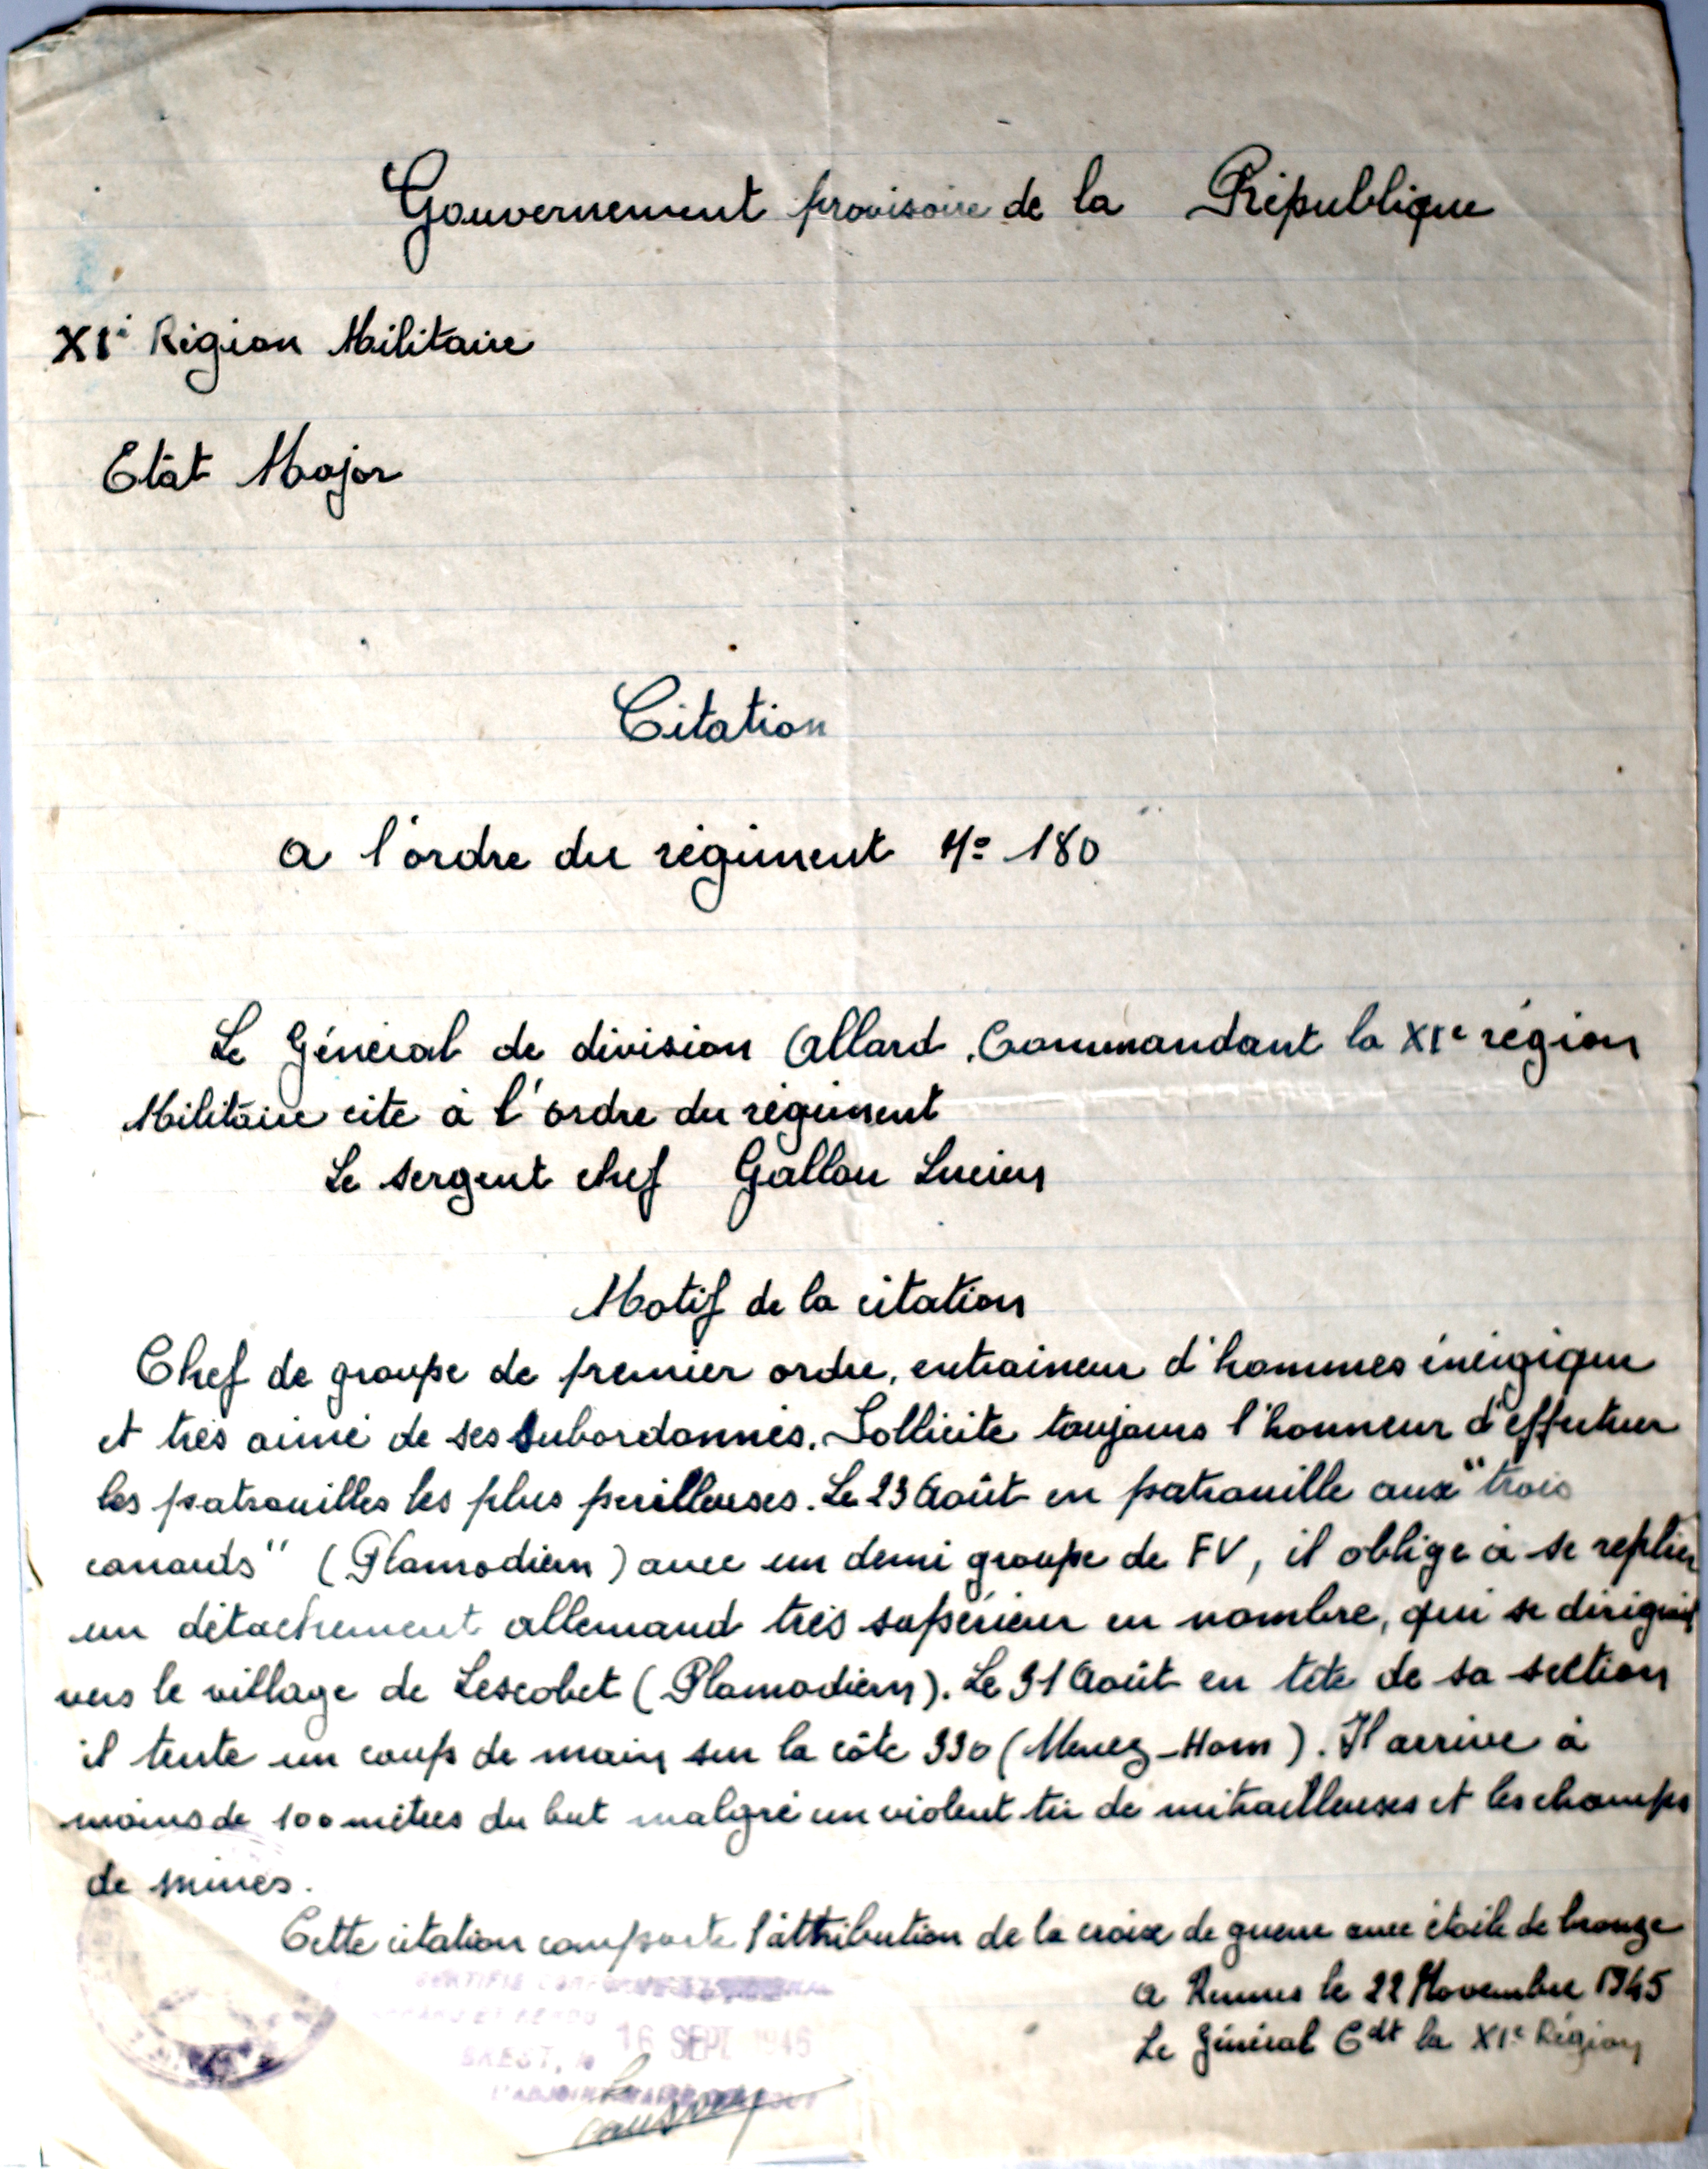 Gouvernement provisoire de la République
XIe Région Militaire
Etat Major
Citation
a l'ordre du régiment No 180
Le Général de division Allard, Commandant la XIe région
Militaire cite à l'ordre du régiment
Le sergent chef Gallou Lucien
Motif de la citation
Chef de groupe de premier ordre, entraineur d'hommes énergique
et très aimé de ses subordonnés. Sollicite toujours l'honneur d'effectuer
les patrouilles les plus perilleuses. Le 23 Août en patrouille aux "trois
canards" (Plamodiern) avec un demi groupe de FV, il oblige à se replier
un détachement allemand très supérieur en nombre, qui se dirigeait
vers le village de Lescobet (Plamodiern). Le 31 Août en tête de sa section
il tente un coup de main sur la côte 330 (Menez-Hom). Il arrive à
moins de 100 mètres du but malgré un violent tir de mitrailleuses et les champs
de mines.
Cette citation comporte l'attribution de la croix de guerre avec étoile de bronze
CERTIFIE CONFORME
A Rennes le 22 Novembre 1945
Le Général Cdt la XIe Région
16 SEPT 1946
BREST, le